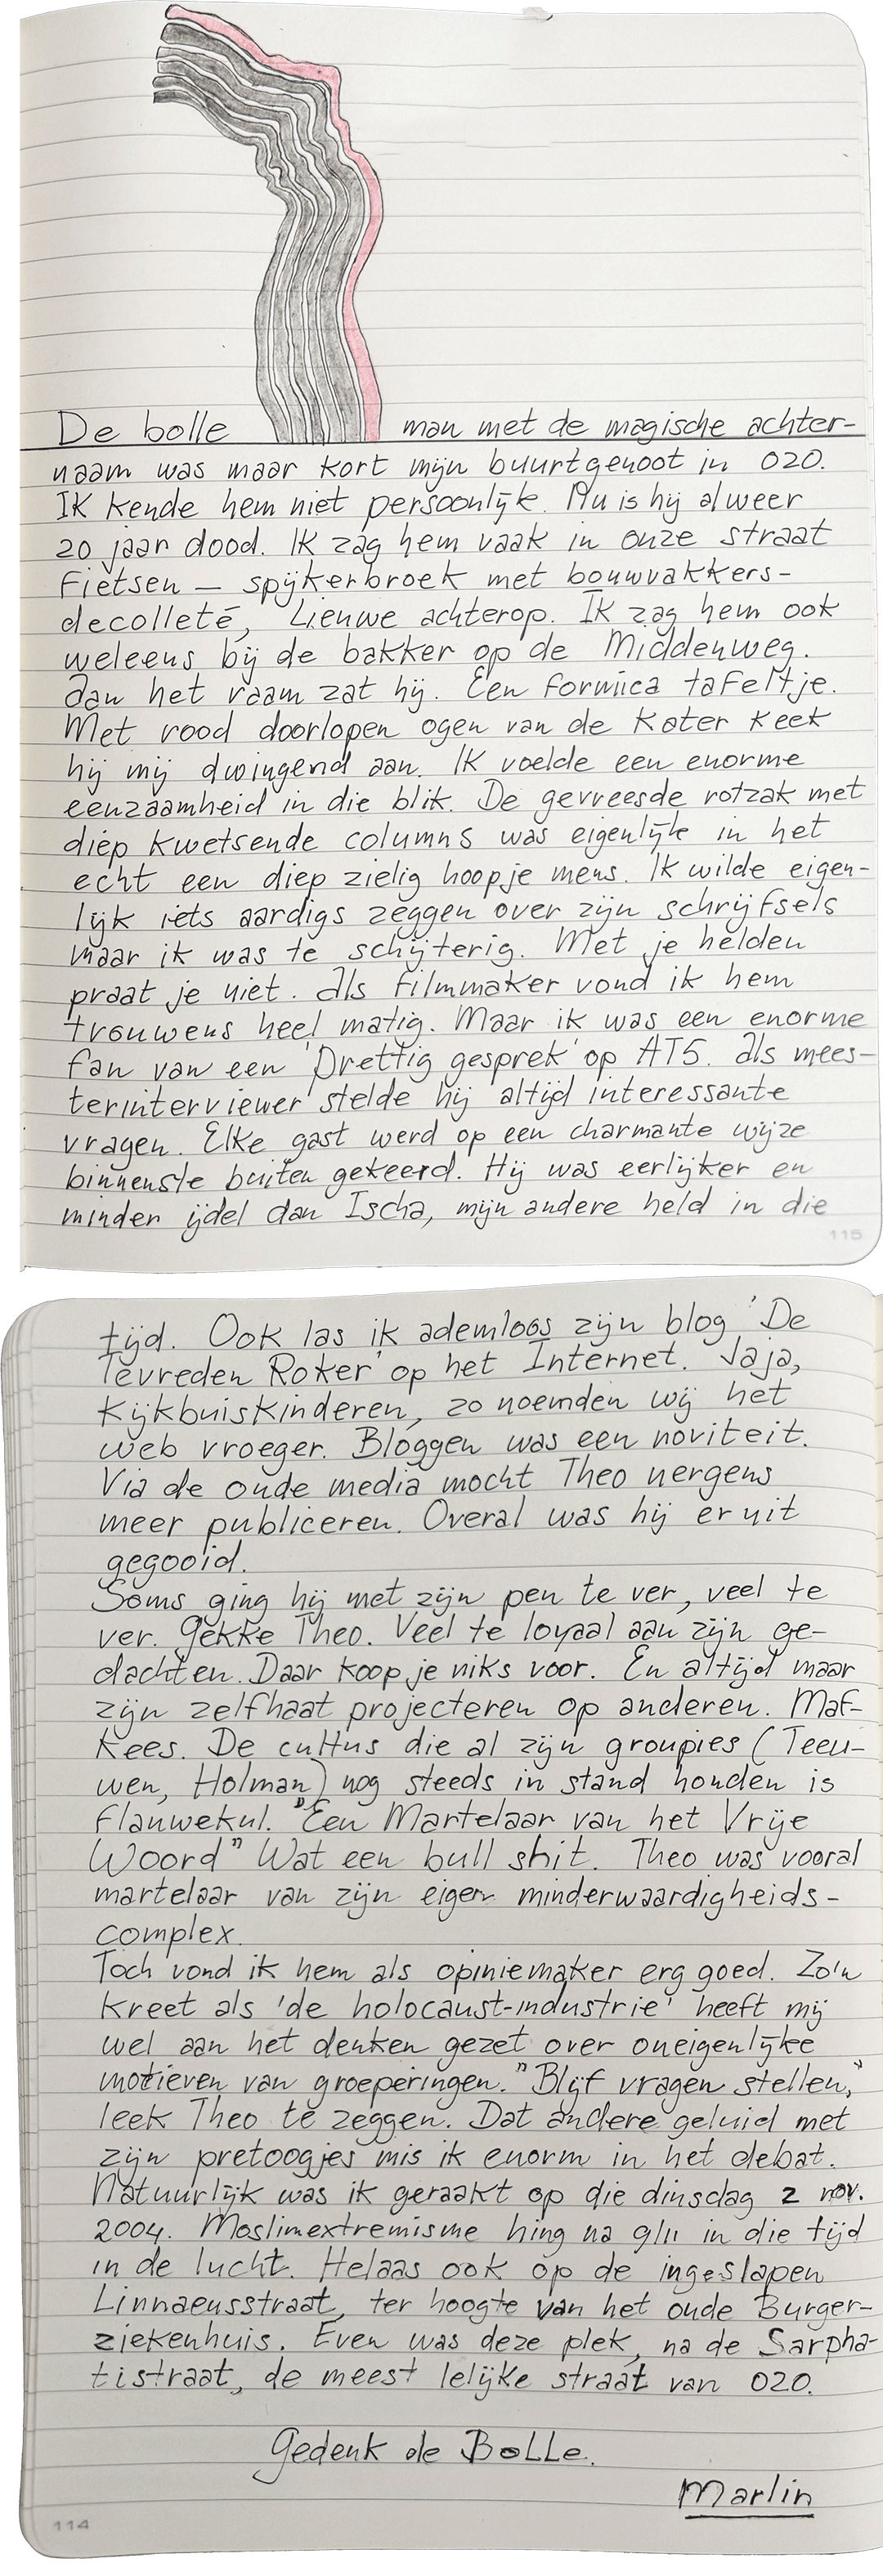 De bolle man met de magische achter-
naam was maar kort mijn buurtgenoot in 020.
Ik kende hem niet persoonlijk. Nu is hij alweer
20 jaar dood. Ik zag hem vaak in onze straat
fietsen — spijkerbroek met bouwvakkers-
decolleté, Lieuwe achterop. Ik zag hem ook
weleens bij de bakker op de Middenweg.
Aan het raam zat hij. Een formica tafeltje.
Met rood doorlopen ogen van de kater keek
hij mij dwingend aan. Ik voelde een enorme
eenzaamheid in die blik. De gevreesde rotzak met
diep kwetsende columns was eigenlijk in het
echt een diep zielig hoopje mens. Ik wilde eigen-
lijk iets aardigs zeggen over zijn schrijfsels
maar ik was te schijterig. Met je helden
praat je niet. Als filmmaker vond ik hem
trouwens heel matig. Maar ik was een enorme
fan van een 'Prettig gesprek' op AT5. Als mees-
terinterviewer stelde hij altijd interessante
vragen. Elke gast werd op een charmante wijze
binnenste buiten gekeerd. Hij was eerlijker en
minder ijdel dan Ischa, mijn andere held in die
115
tijd. Ook las ik ademloos zijn blog 'De
Tevreden Roker' op het Internet. Jaja,
kijkbuiskinderen, zo noemden wij het
web vroeger. Bloggen was een noviteit.
Via de oude media mocht Theo nergens
meer publiceren. Overal was hij eruit
gegooid.
Soms ging hij met zijn pen te ver, veel te
ver. Gekke Theo. Veel te loyaal aan zijn ge-
dachten. Daar koop je niks voor. En altijd maar
zijn zelfhaat projecteren op anderen. Maf-
kees. De cultus die al zijn groupies (Teeu-
wen, Holman) nog steeds in stand houden is
flauwekul. "Een Martelaar van het Vrije
Woord" Wat een bull shit. Theo was vooral
martelaar van zijn eigen minderwaardigheids-
complex.
Toch vond ik hem als opiniemaker erg goed. Zo'n
kreet als 'de holocaust-industrie' heeft mij
wel aan het denken gezet over oneigenlijke
motieven van groeperingen. "Blijf vragen stellen,"
leek Theo te zeggen. Dat andere geluid met
zijn pretoogjes mis ik enorm in het debat.
Natuurlijk was ik geraakt op die dinsdag 2 nov.
2004. Moslimextremisme hing na 9/11 in die tijd
in de lucht. Helaas ook op de ingeslapen
Linnaeusstraat, ter hoogte van het oude Burger-
ziekenhuis. Even was deze plek, na de Sarpha-
tistraat, de meest lelijke straat van 020.
Gedenk de BoLLe.
Marlin
114